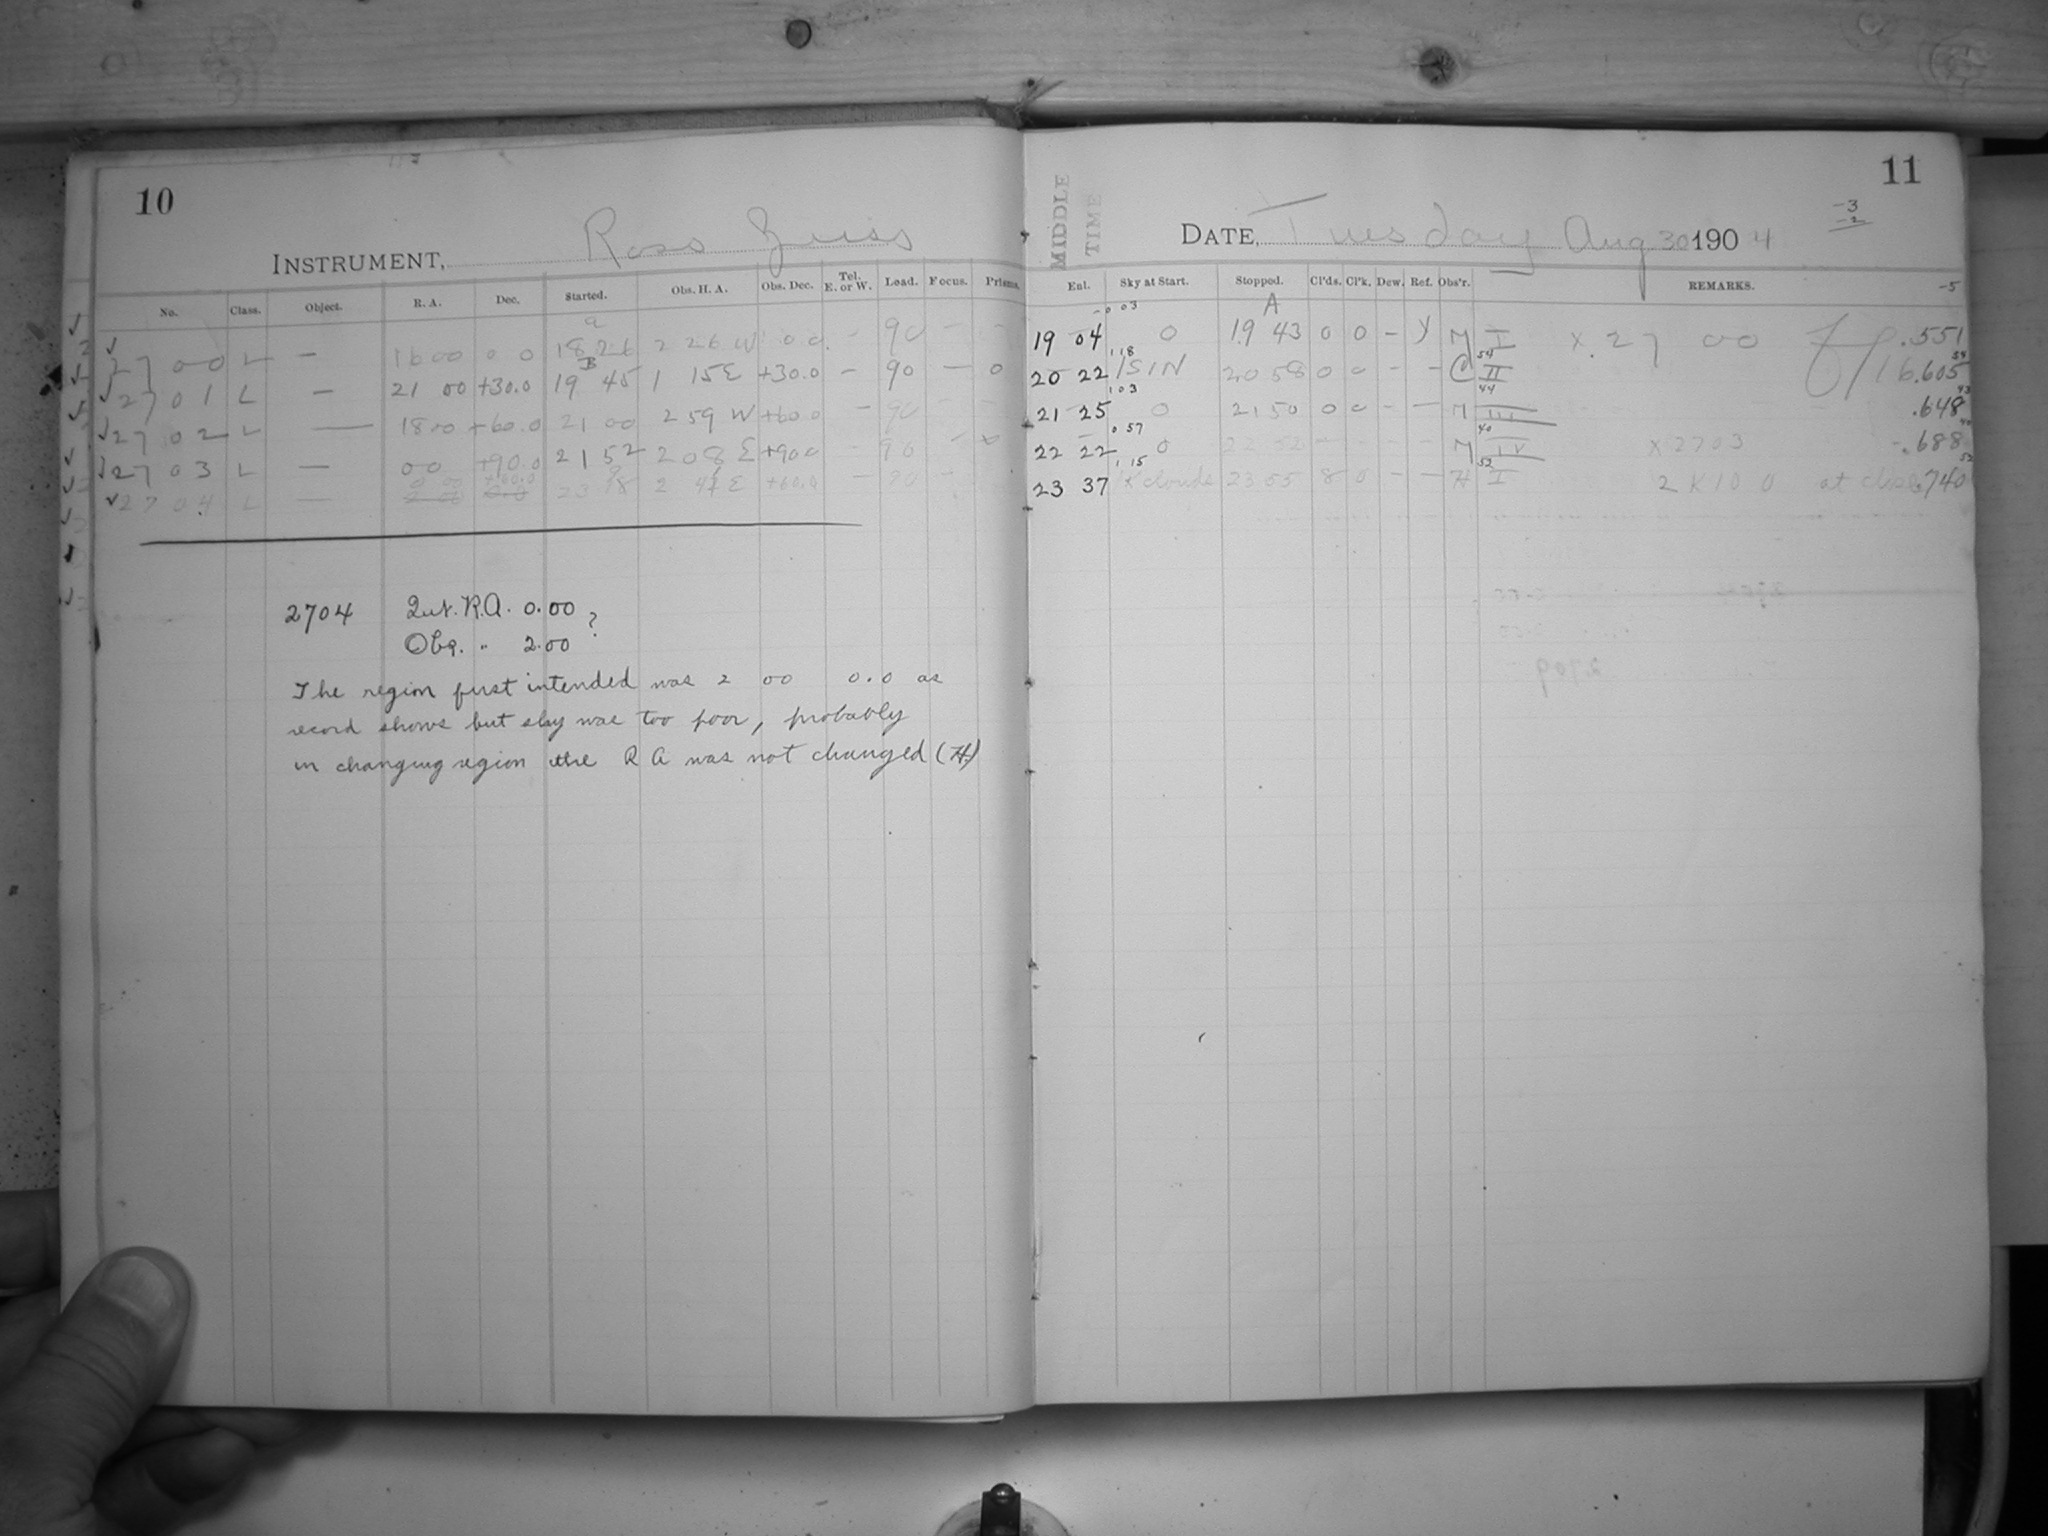 10
INSTRUMENT, Ross Zeiss
No. Class. Object. R. A. Dec. Started. Obs. H. A. Obs. Dec. Tel. E. or W. Load. Focus. Prisms.
2700 L — 16 00 0 0 18 26 2 26 W 0 0 — 90 — —
2701 L — 21 00 +30.0 19 45 1 15 E +30.0 — 90 — 0
2702 L — 18 00 +60.0 21 00 2 59 W +60.0 — 90 — —
2703 L — 0 0 +90.0 21 52 2 08 E +90 0 — 90 —
2704 L — 0 00 +60.0 23 18 2 41 E +60.0 — 90 —
2 00 0.0
2704 Int. R.A. 0.00 ?
Obs. " 2.00
The region first intended was 2 00 0.0 as
record shows but sky was too poor, probably
in changing region the R A was not changed (H.)
11
MIDDLE TIME
DATE, Tuesday Aug 30 1904
-3
-2
Enl. Sky at Start. Stopped. Cl'ds. Cl'k. Dew. Ref. Obs'r. REMARKS. -5
A
19 04 0 19 43 0 0 — Y M I X 27 00 .551
20 22 1SIN 20 58 0 0 — — C II 16.605
21 25 0 21 50 0 0 — — M III .648
22 22 0 22 52 — — — — M IV X 2703 .688
23 37 K clouds 23 55 8 0 — — H I 2 K 10 0 at close .740